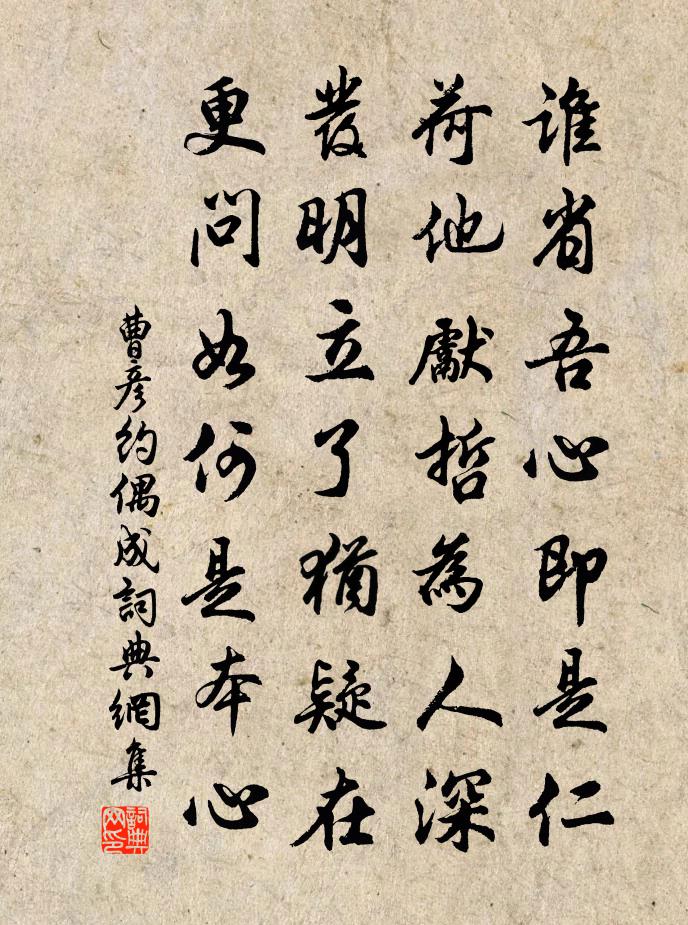 誰省吾心即是仁
荷他獻哲為人深
發明立了猶疑在
更問如何是本心
曹彥約偶成詞典網集
詞典网印